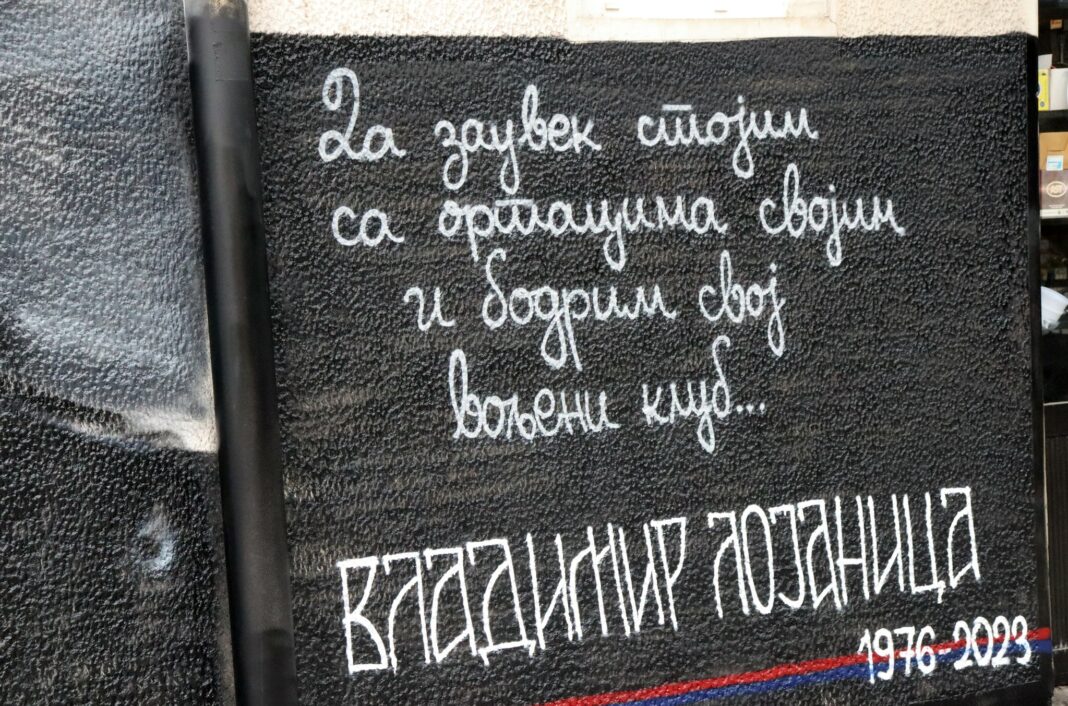 Да заувек стојим
са ортацима својим
и бодрим свој
вољени клуб...
ВЛАДИМИР ЛОЈАНИЦА
1976-2023